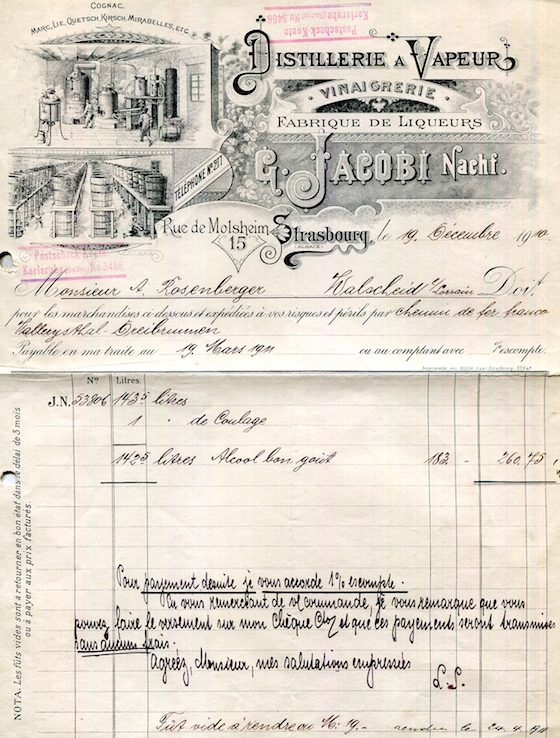 COGNAC,
MARC, LIE, QUETSCH, KIRSCH, MIRABELLES, ETC.
Postscheck-Konto
Karlsruhe (Baden) No 3466
DISTILLERIE A VAPEUR
VINAIGRERIE
FABRIQUE DE LIQUEURS
G. JACOBI Nachf.
TÉLÉPHONE No 217
Rue de Molsheim
15
Strasbourg, le 19 Décembre 1910
(ALSACE)
Postscheck-Konto
Karlsruhe (Baden) No. 3466
Monsieur A. Rosenberger Walscheid i/Lorrain Doit
pour les marchandises ci-dessous et expédiées à vos risques et périls par chemin de fer franco
Vallerysthal-Dreibrunnen
Payable en ma traite au 19 Mars 1911 ou au comptant avec % escompte.
No Litres.
J.N. 53806 143⁵ litres
1 " de Coulage
142⁵ litres Alcool bon goût 183 - 260.75
Pour payement desuite je vous accorde 1% escompte.
En vous remerciant de vt commande, je vous remarque que vous
pouvez faire le versement sur mon Chèque Cto/ et que ces payements seront transmises
sans aucuns frais.
Agréez, Monsieur, mes salutations empressées
Fût vide à rendre au M. 19.- rendu le 24.4.
NOTA. Les fûts vides sont à retourner en bon état dans le délai de 3 mois
ou à payer aux prix facturés.